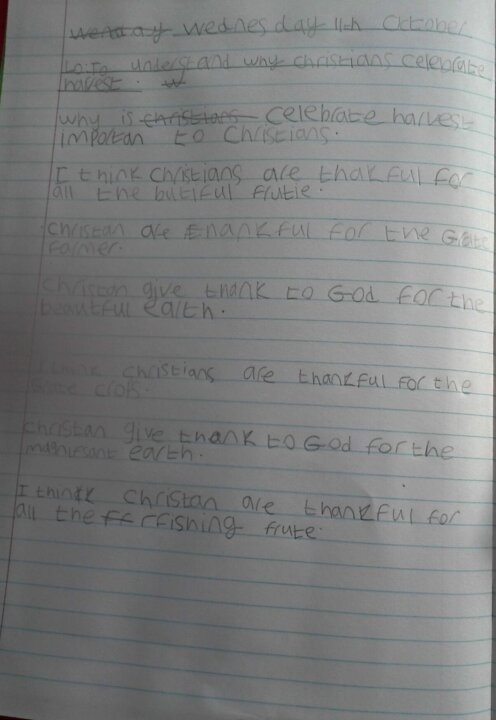 Wenday Wednesday 11th October
L.O: To understand why christians celebrate
harest. W
why is christians celebrate harvest
importan to Christians.
I think Christians are thakful for
all the butiful frutie.
Christan are thankful for the Grate
farmer.
Christan give thank to God for the
beautful earth.
I think christians are thankful for the
crops.
Christan give thank to God for the
earth.
I think christan are thankful for
all the rfishing frute.